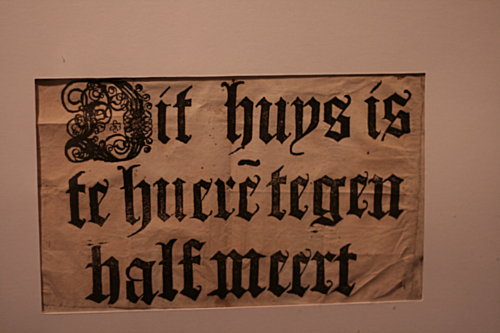 Dit huys is
te huerē tegen
half meert